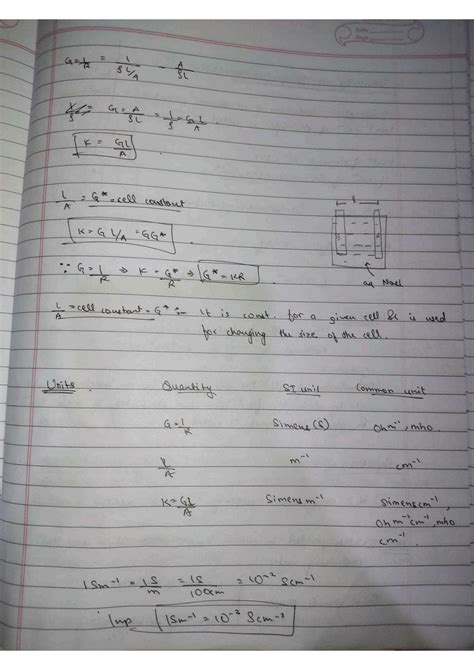 G = 1/R = 1/(ρL/A) - A/ρL
G = A/ρL = 1/ρ = GL/A
K = GL/A
l/A = G* = cell constant
K = G L/A = GG*
∵ G = 1/R ⇒ K = G*/R ⇒ G* = KR
l
aq NaCl
L/A = cell constant = G* :- It is const. for a given cell & is used
for changing the size of the cell.
Units Quantity SI unit Common unit
G = 1/R Simens (S) Ohm⁻¹, mho
l/A m⁻¹ cm⁻¹
K = GL/A Simens m⁻¹ Simens cm⁻¹,
Ohm⁻¹cm⁻¹, mho
cm⁻¹
1Sm⁻¹ = 1S/m = 1S/100cm = 10⁻² Scm⁻¹
Imp 1Sm⁻¹ = 10⁻² Scm⁻¹